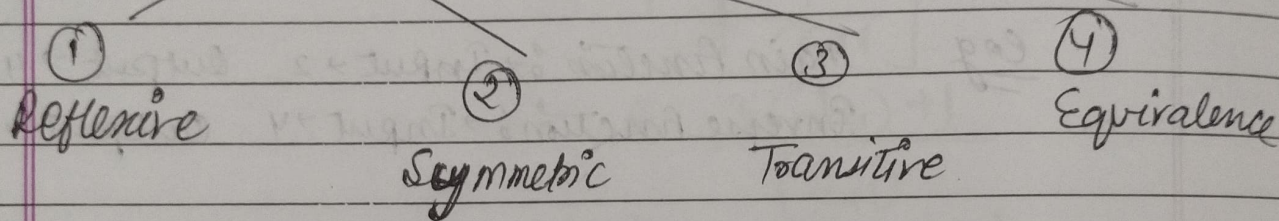 ① ② ③ ④
Reflexive Symmetric Transitive Equivalence